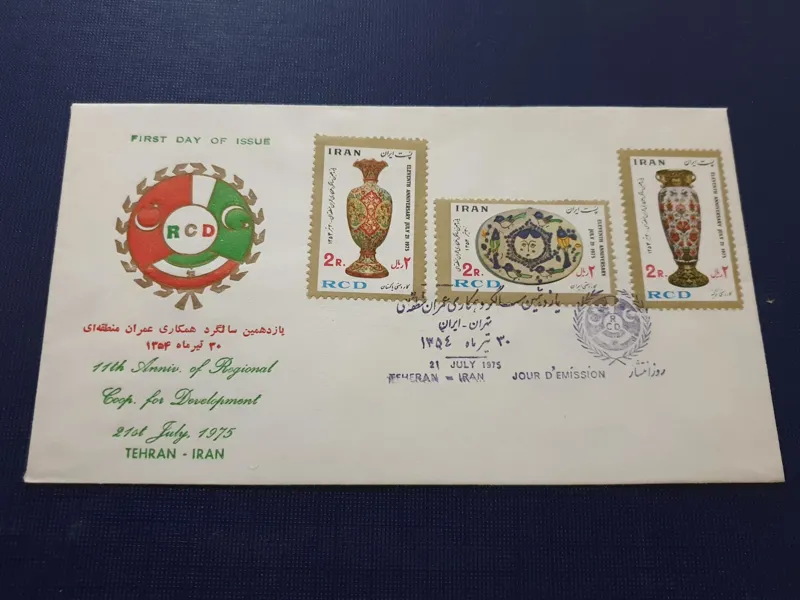 FIRST DAY OF ISSUE
RCD
یازدهمین سالگرد همکاری عمران منطقه‌ای
۳۰ تیرماه ۱۳۵۴
11th Anniv. of Regional
Coop. for Development
21st July, 1975
TEHRAN - IRAN
IRAN پست ایران
ELEVENTH ANNIVERSARY JULY 21 1975
2R. ۲ ریال
RCD
IRAN پست ایران
ELEVENTH ANNIVERSARY JULY 21 1975
2R. ۲ ریال
RCD
IRAN پست ایران
ELEVENTH ANNIVERSARY JULY 21 1975
2R. ۲ ریال
RCD
یازدهمین سالگرد همکاری عمران منطقه‌ای
تهران - ایران
۳۰ تیر ماه ۱۳۵٤
21 JULY 1975
TEHERAN = IRAN JOUR D'EMISSION روز انتشار
RCD